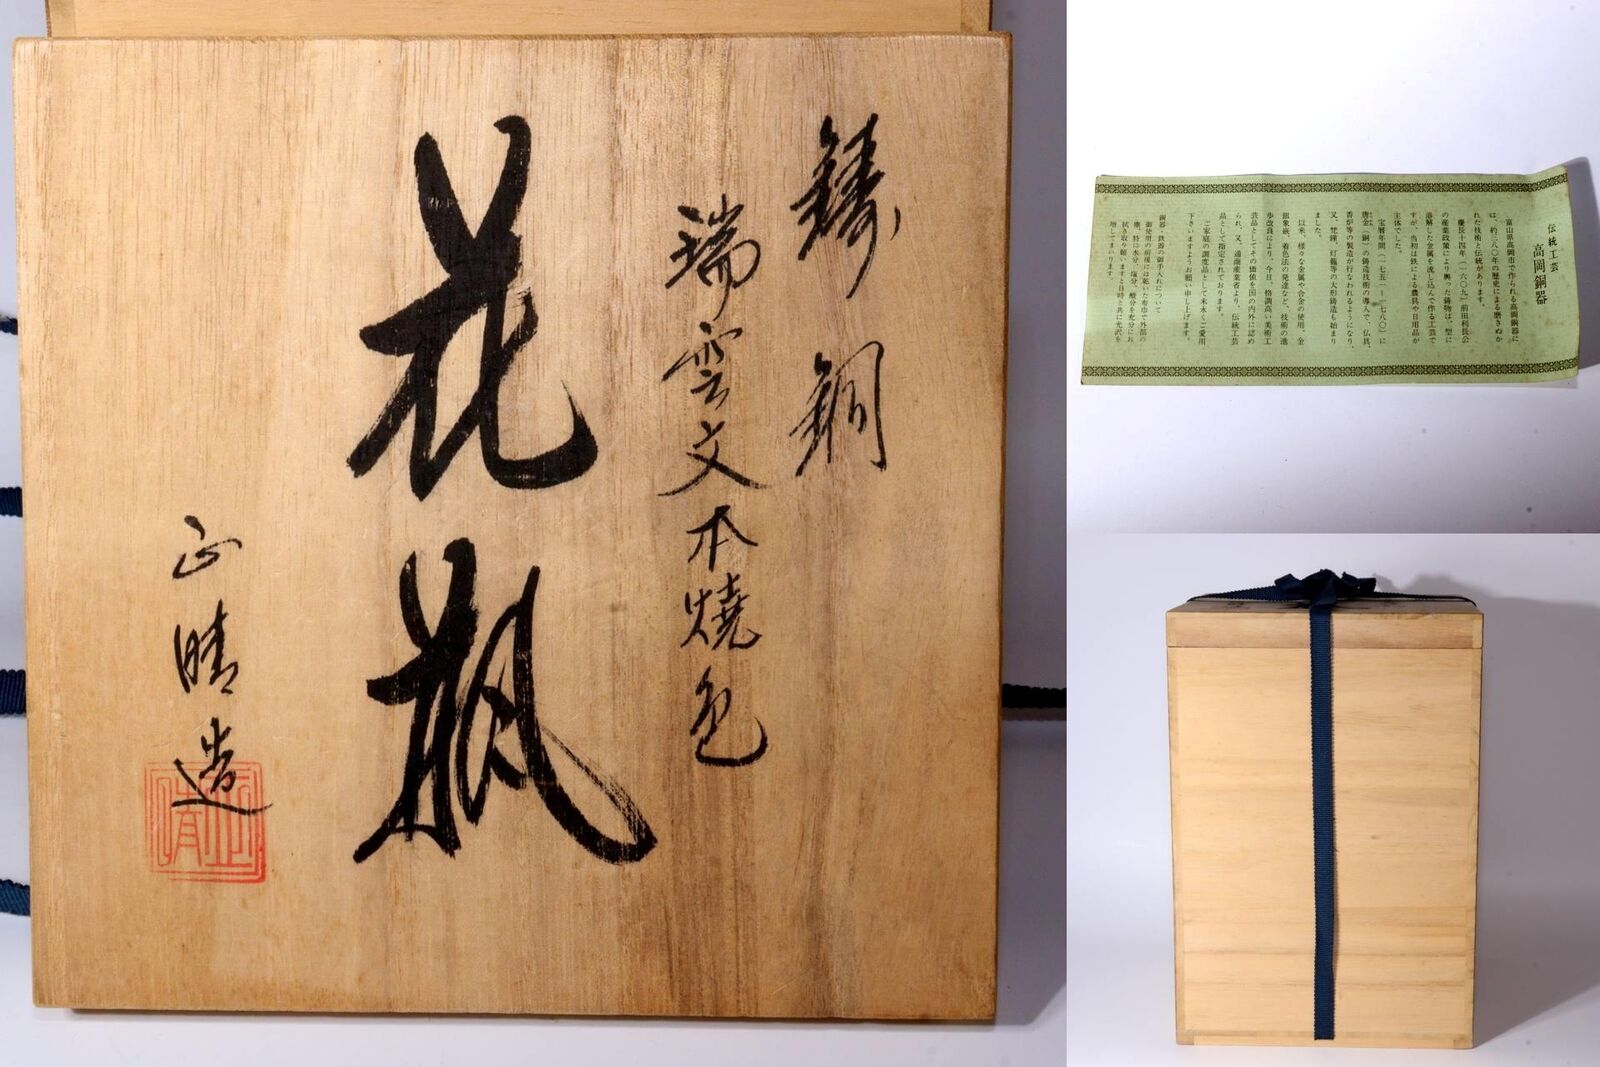 鋳銅
瑞雲文本燒色
花瓶
正晴造
正晴
伝統工芸
高岡銅器
富山県高岡市で作られる高岡銅器に
は、約三八〇年の歴史による磨きぬか
れた技術と伝統があります。
慶長十四年(一六〇九)前田利長公
の産業政策により興った鋳物は、型に
溶解した金属を流し込んで作る工芸で
すが、当初は鉄による農具や日用品が
主体でした。
宝暦年間(一七五一―一七八〇)に
唐金(銅)の鋳造技術の導入で、仏具、
香炉等の製造が行なわれるようになり、
又、梵鐘、灯籠等の大形鋳造も始まり
ました。
以来、様々な金属や合金の使用、金
銀象嵌、着色法の発達など、技術の進
歩改良により、今日、格調高い美術工
芸品としてその価値を国の内外に認め
られ、又、通商産業省より、伝統工芸
品として指定されております。
ご家庭の調度品として末永くご愛用
下さいますようお願い申し上げます。
銅器・鉄器の御手入れについて
御使用の前後には乾いた布巾で外部の
塵、特に水分、塩分、酸分を充分にお
拭き取り願いますと日時と共に光沢を
増してまいります。